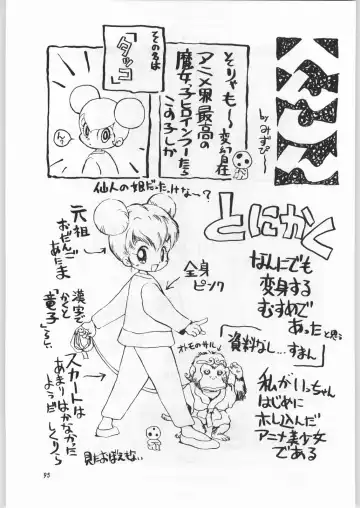 byみずぴー
そりゃも〜変幻自在
アニメ界最高の
魔女っ子ヒロインつーたら
この子しか
その名は
「タッコ」
仙人の娘だったけな〜?
とにかく
なんにでも
変身する
むすめで
あったと思う
「資料なし…すまん」
私がいっちゃん
はじめに
ホレ込んだ
アニメ美少女
である
元祖
おだんご
あたま
全身
ピンク
漢字で
かくと
「童子」
オトモのサル
スカートは
あまりはかなかった
ようだ
見たおぼえがない
95